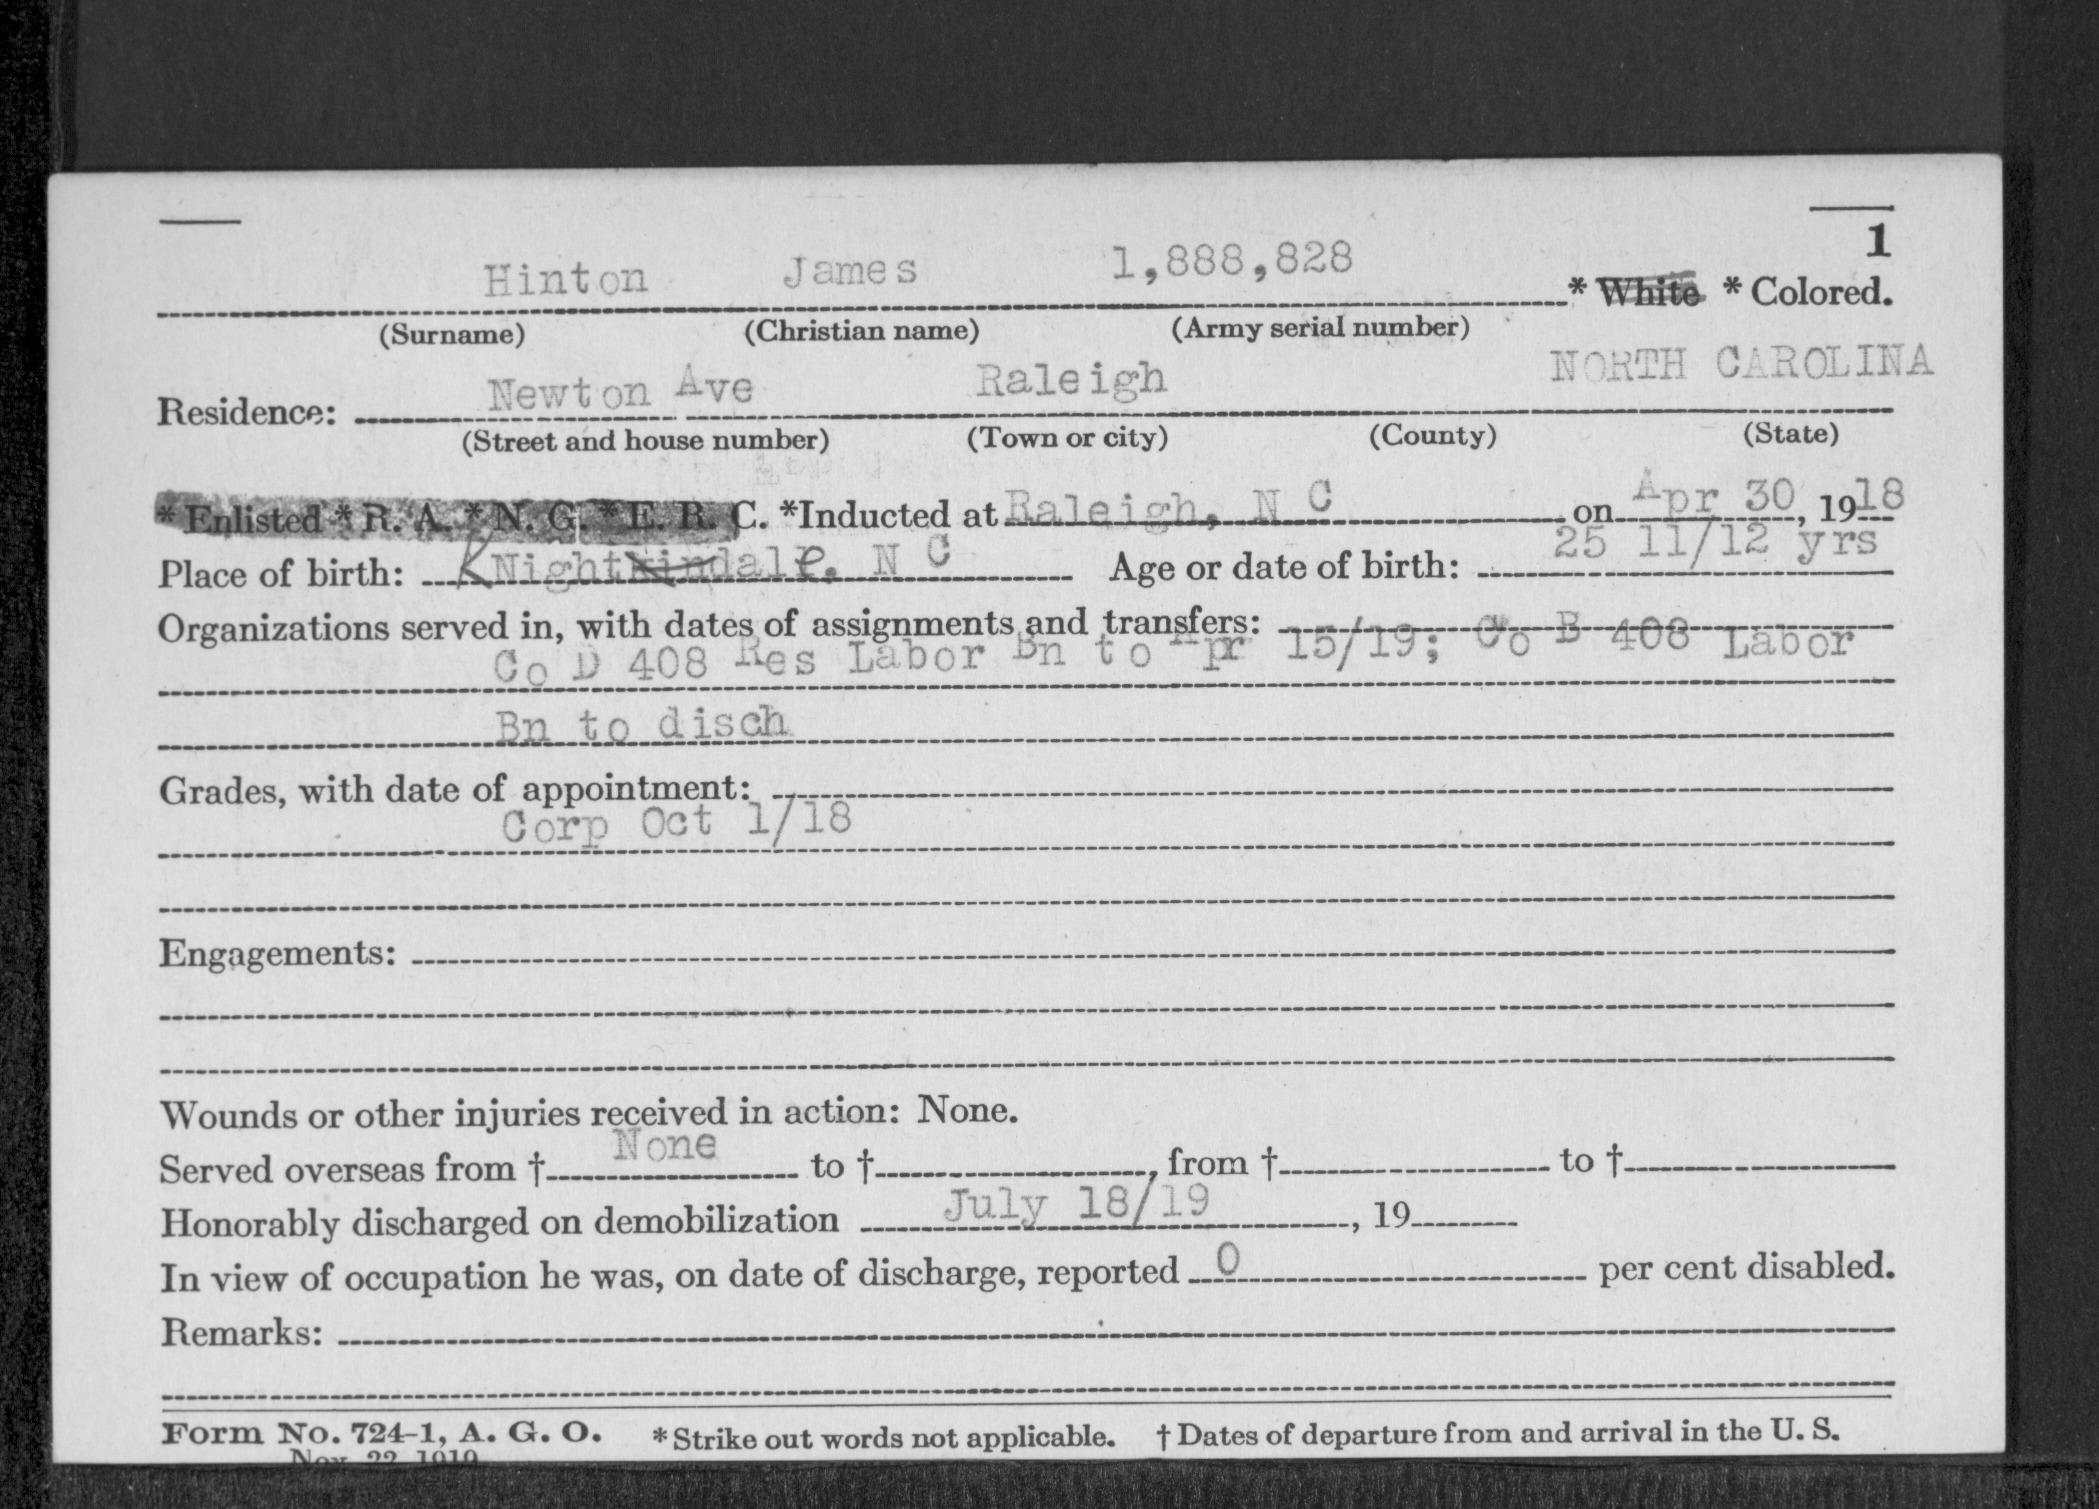 1
Hinton James 1,888,828 * White * Colored.
(Surname) (Christian name) (Army serial number)
Residence: Newton Ave Raleigh NORTH CAROLINA
(Street and house number) (Town or city) (County) (State)
* Enlisted * R. A. * N. G. * E. R. C. *Inducted at Raleigh, N C on Apr 30, 1918
Place of birth: KNightkindale, N C Age or date of birth: 25 11/12 yrs
Organizations served in, with dates of assignments and transfers:
Co D 408 Res Labor Bn to Apr 15/19; Co B 408 Labor
Bn to disch
Grades, with date of appointment:
Corp Oct 1/18
Engagements:
Wounds or other injuries received in action: None.
Served overseas from † None to †, from † to †
Honorably discharged on demobilization July 18/19, 19
In view of occupation he was, on date of discharge, reported 0 per cent disabled.
Remarks:
Form No. 724-1, A. G. O. * Strike out words not applicable. † Dates of departure from and arrival in the U. S.
Nov. 22, 1919